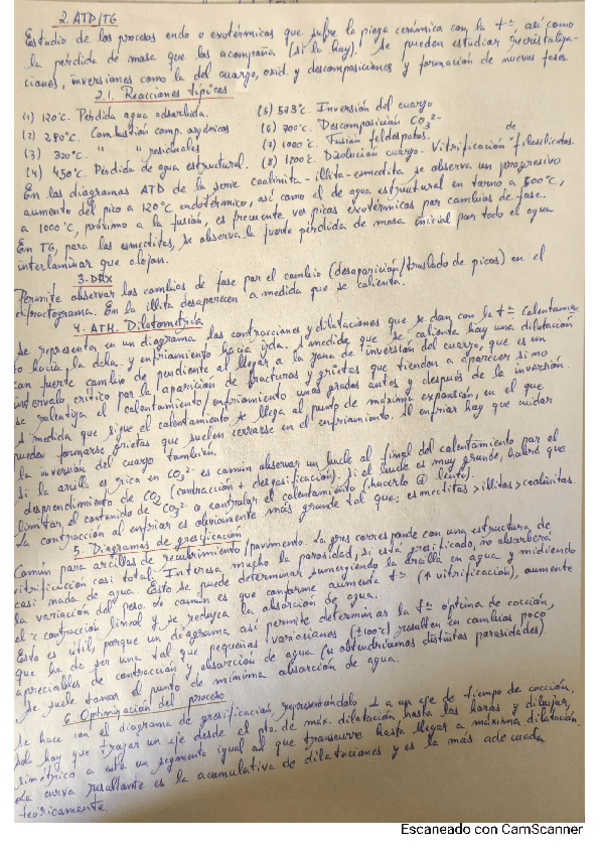 2. ATD/TG
Estudio de los procesos endo o exotérmicos que sufre la pieza cerámica con la tª, así como
la pérdida de masa que los acompaña (si la hay). Se pueden estudiar recristaliza-
ciones, inversiones como la del cuarzo, oxid. y descomposiciones y formación de nuevas fases.
2.1. Reacciones típicas
(1) 120°C. Pérdida agua adsorbida. (5) 573°C. Inversión del cuarzo
(2) 280°C. Combustión comp. orgánicos (6) 700°C. Descomposición CO₃²⁻
(3) 320°C. " " residuales (7) 1000°C. Fusión feldespatos.
(4) 450°C. Pérdida de agua estructural. (8) 1200°C. Disolución cuarzo. Vitrificación de filosilicatos.
En los diagramas ATD de la serie caolinita-illita-esmectita se observa un progresivo
aumento del pico a 120°C endotérmico, así como el de agua estructural en torno a 500°C,
a 1000°C, próximo a la fusión, es frecuente ver picos exotérmicos por cambios de fase.
En TG, para las esmectitas, se observa la fuerte pérdida de masa inicial por todo el agua
interlaminar que alojan.
3. DRX
Permite observar los cambios de fase por el cambio (desaparición/traslado de picos) en el
difractograma. En la illita desaparecen a medida que se calienta.
4. ATH. Dilatometría
Se representa en un diagrama las contracciones y dilataciones que se dan con la tª. Calentamien
to hacia la dcha. y enfriamiento hacia izda. A medida que se calienta hay una dilatación
con fuerte cambio de pendiente al llegar a la zona de inversión del cuarzo, que es un
intervalo crítico por la aparición de fracturas y grietas que tienden a aparecer si no
se ralentiza el calentamiento/enfriamiento unos grados antes y después de la inversión.
A medida que sigue el calentamiento se llega al punto de máxima expansión, en el que
pueden formarse grietas que suelen cerrarse en el enfriamiento. Al enfriar hay que cuidar
la inversión del cuarzo también.
Si la arcilla es rica en CO₃²⁻ es común observar un bucle al final del calentamiento por el
desprendimiento de CO₂ (contracción + desgasificación). Si el bucle es muy grande, habrá que
limitar el contenido de CO₃²⁻ o controlar el calentamiento (hacerlo lento).
La contracción al enfriar es obviamente más grande tal que: esmectitas > illitas > caolinitas.
5. Diagramas de gresificación
Común para arcillas de recubrimiento/pavimento. La gres corresponde con una estructura de
vitrificación casi total. Interesa mucho la porosidad, si está gresificado, no absorberá
casi nada de agua. Esto se puede determinar sumergiendo la arcilla en agua y midiendo
la variación del peso. Lo común es que conforme aumenta tª (↑ vitrificación), aumente
el % contracción lineal y se reduzca la absorción de agua.
Esto es útil, porque un diagrama así permite determinar la tª óptima de cocción,
que ha de ser una tal que pequeñas variaciones (±100°C) resulten en cambios poco
apreciables de contracción y absorción de agua (u obtendríamos distintas porosidades)
Se suele tomar el punto de mínima absorción de agua.
6. Optimización del proceso
Se hace con el diagrama de gresificación, representándolo ⊥ a un eje de tiempo de cocción.
Solo hay que trazar un eje desde el pto. de máx. dilatación hasta las horas y dibujar,
simétrico a este un segmento igual al que transcurre hasta llegar a máxima dilatación.
La curva resultante es la acumulativa de dilataciones y es la más adecuada
teóricamente.
Escaneado con CamScanner